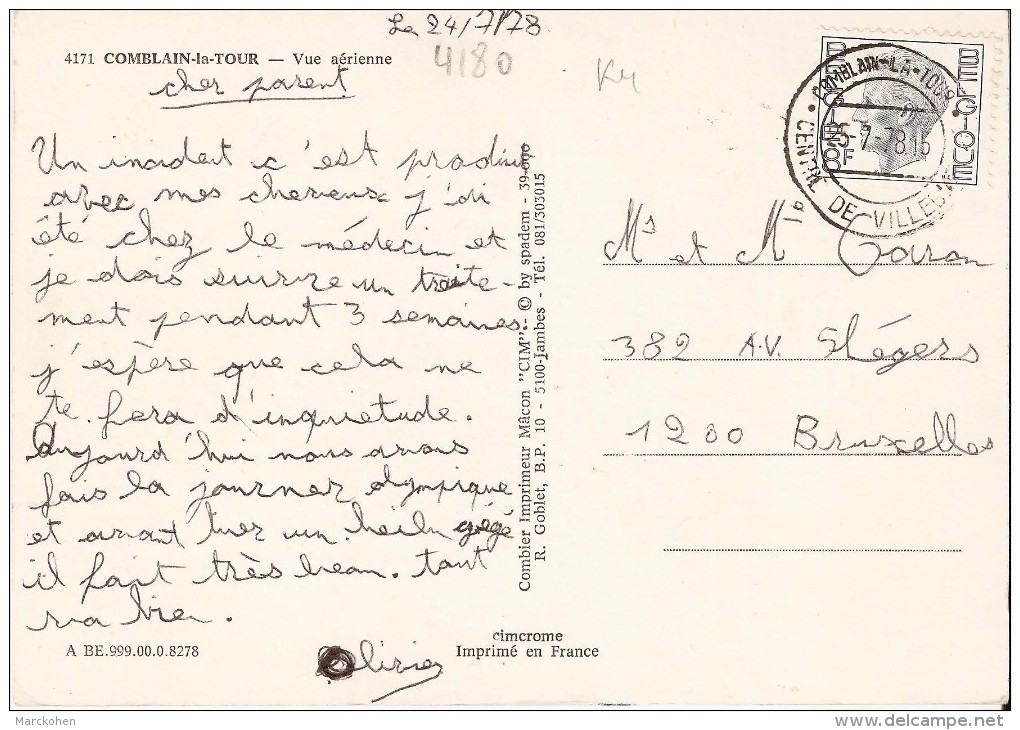 Le 24/7/78
4180
4171 COMBLAIN-la-TOUR — Vue aérienne
cher parent
Un incident c'est produit
avec mes cheveux j'ai
été chez le médecin et
je dois suivre un traite-
ment pendant 3 semaines.
j'espère que cela ne
te fera d'inquietude.
Aujourd'hui nous avons
fais la journer olympique
et avant tuer un
il fait très beau. tant
va bien.
Olivier
A BE.999.00.0.8278
cimcrome
Imprimé en France
Combier Imprimeur Mâcon "CIM" - © by spadem - 39-090
R. Goblet, B.P. 10 - 5100-Jambes - Tél. 081/303015
BELGIQUE
COMBLAIN-LA-TOUR
CENTRE DE
-7-78 15
Ms et M Caron
382 A.V. Slégers
1200 Bruxelles
Marckohen
www.delcampe.net